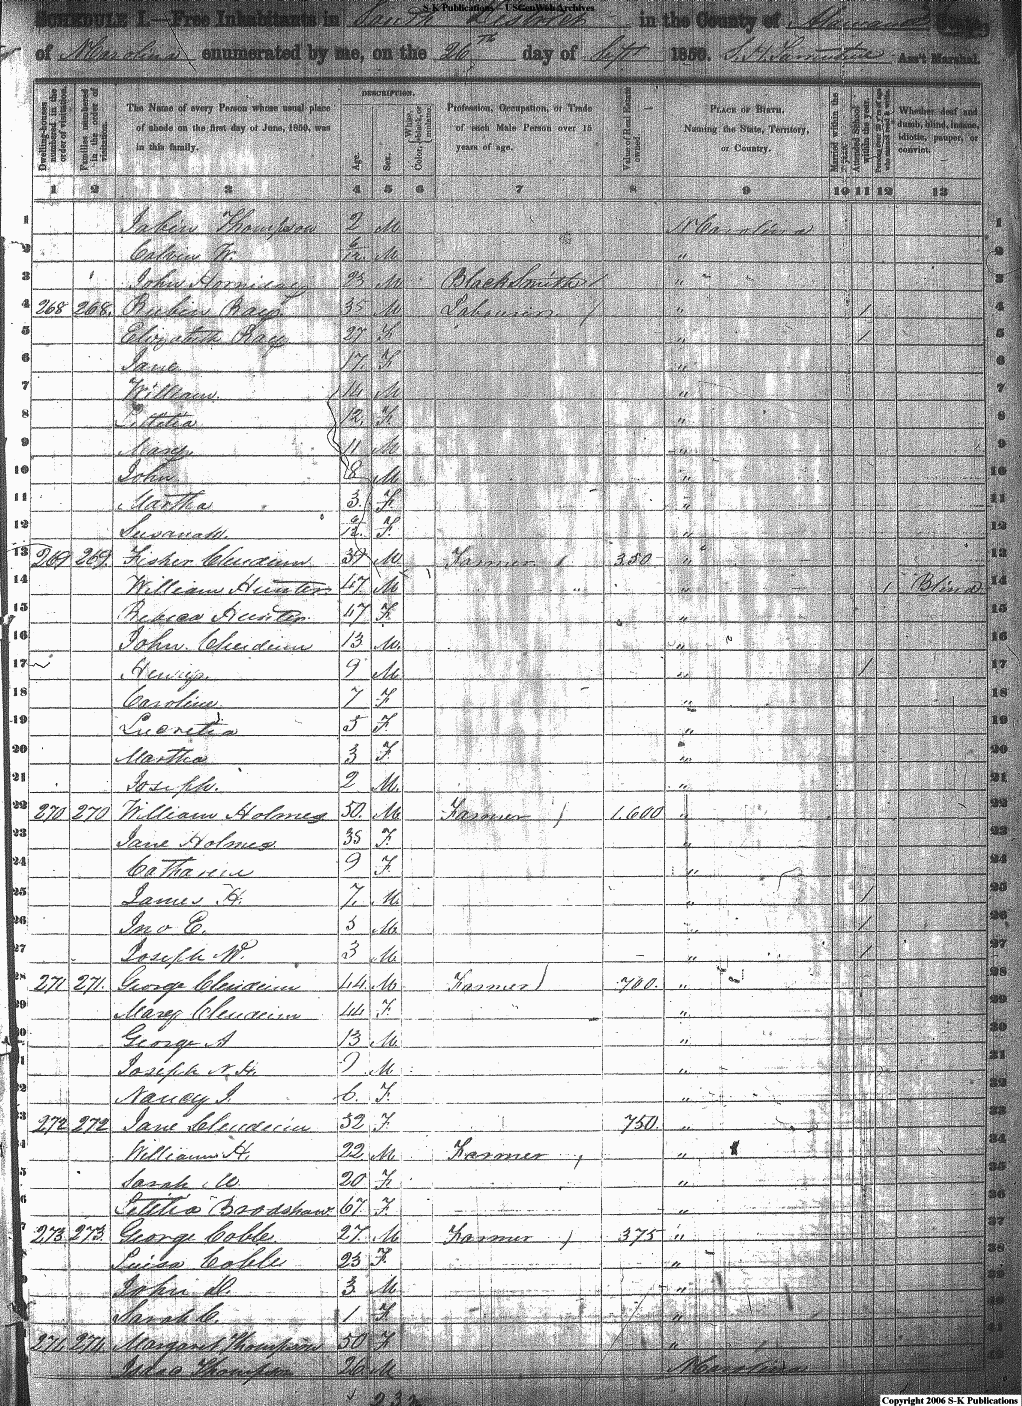 S-K Publications - USGenWeb Archives
SCHEDULE I.—Free Inhabitants in South District in the County of Alamance State
of N Carolina enumerated by me, on the 26th day of Sept 1850. Ass't Marshal.
Dwelling-houses numbered in the order of visitation.
Families numbered in the order of visitation.
The Name of every Person whose usual place of abode on the first day of June, 1850, was in this family.
DESCRIPTION.
Age.
Sex.
Color, White, black, or mulatto.
Profession, Occupation, or Trade of each Male Person over 15 years of age.
Value of Real Estate owned.
PLACE OF BIRTH. Naming the State, Territory, or Country.
Married within the year.
Attended School within the year.
Persons over 20 y'rs of age who cannot read & write.
Whether deaf and dumb, blind, insane, idiotic, pauper, or convict.
1 2 3 4 5 6 7 8 9 10 11 12 13
1 Thompson 2 M N Carolina 1
2 Calvin W. 6/12 M " 2
3 John Hornidey 23 M BlackSmith " 3
4 268 268. Rubin Ray 35 M " 1 4
5 Elizabeth Ray 27 F " 1 5
6 Jane 17. F " 6
7 William. 14 M " 7
8 Letitia 12. F " 8
9 Mary 11 M " 9
10 John 8 M " 10
11 Martha 3 F " 11
12 Susanah. 12. F " 12
13 269 269. Fisher Clendenin 39 M Farmer 350 " 13
14 William Hunter 47 M " " 1 Blind 14
15 Hunter 47 F " 15
16 John. Clendenin 13 M. " 16
17 Henry. 9 M " 1 17
18 Caroline 7 F " 18
19 Lucretia 5 F " 19
20 Martha 3 F " 20
21 Joseph. 2 M. " 21
22 270 270 William Holmes 50. M Farmer 1.600 " 22
23 Jane Holmes 35 F. " 23
24 9 F " 24
25 James H. 7. M " 1 25
26 Jno C. 5 M " 1 26
27 Joseph W. 3 M " 1 27
28 271 271. George Clendenin 44. M Farmer 700. " 28
29 Mary Clendenin 44 F " 29
30 George A 13 M " 30
31 Joseph N. H. M " 31
32 Nancy J. 6. F " 32
33 272 272 Jane Clendenin 52 F 750. " 33
34 William H. 22 M Farmer " 34
35 Sarah M. 20 F " 35
36 Letitia Bradshaw 67. F " 36
37 273 273. George Coble 27. M Farmer 375 " 37
38 Coble 23 F " 38
39 John D. 3 M "
Sarah C. 1 F "
274 274 Margaret Thompson 50 F "
Isaac Thompson 26 M N Carolina
232
Copyright 2006 S-K Publications